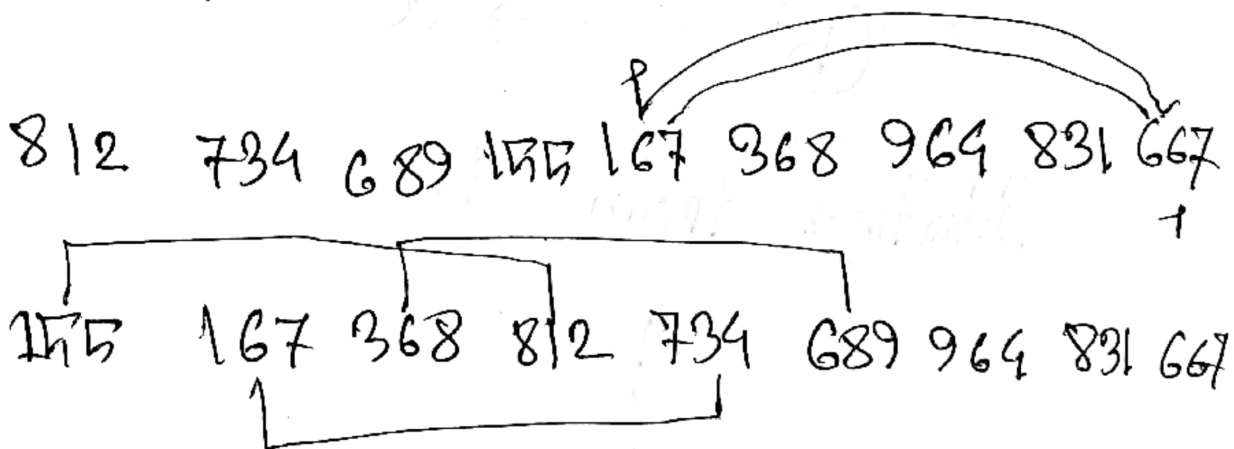 812 734 689 155 167 368 964 831 667
155 167 368 812 734 689 964 831 667